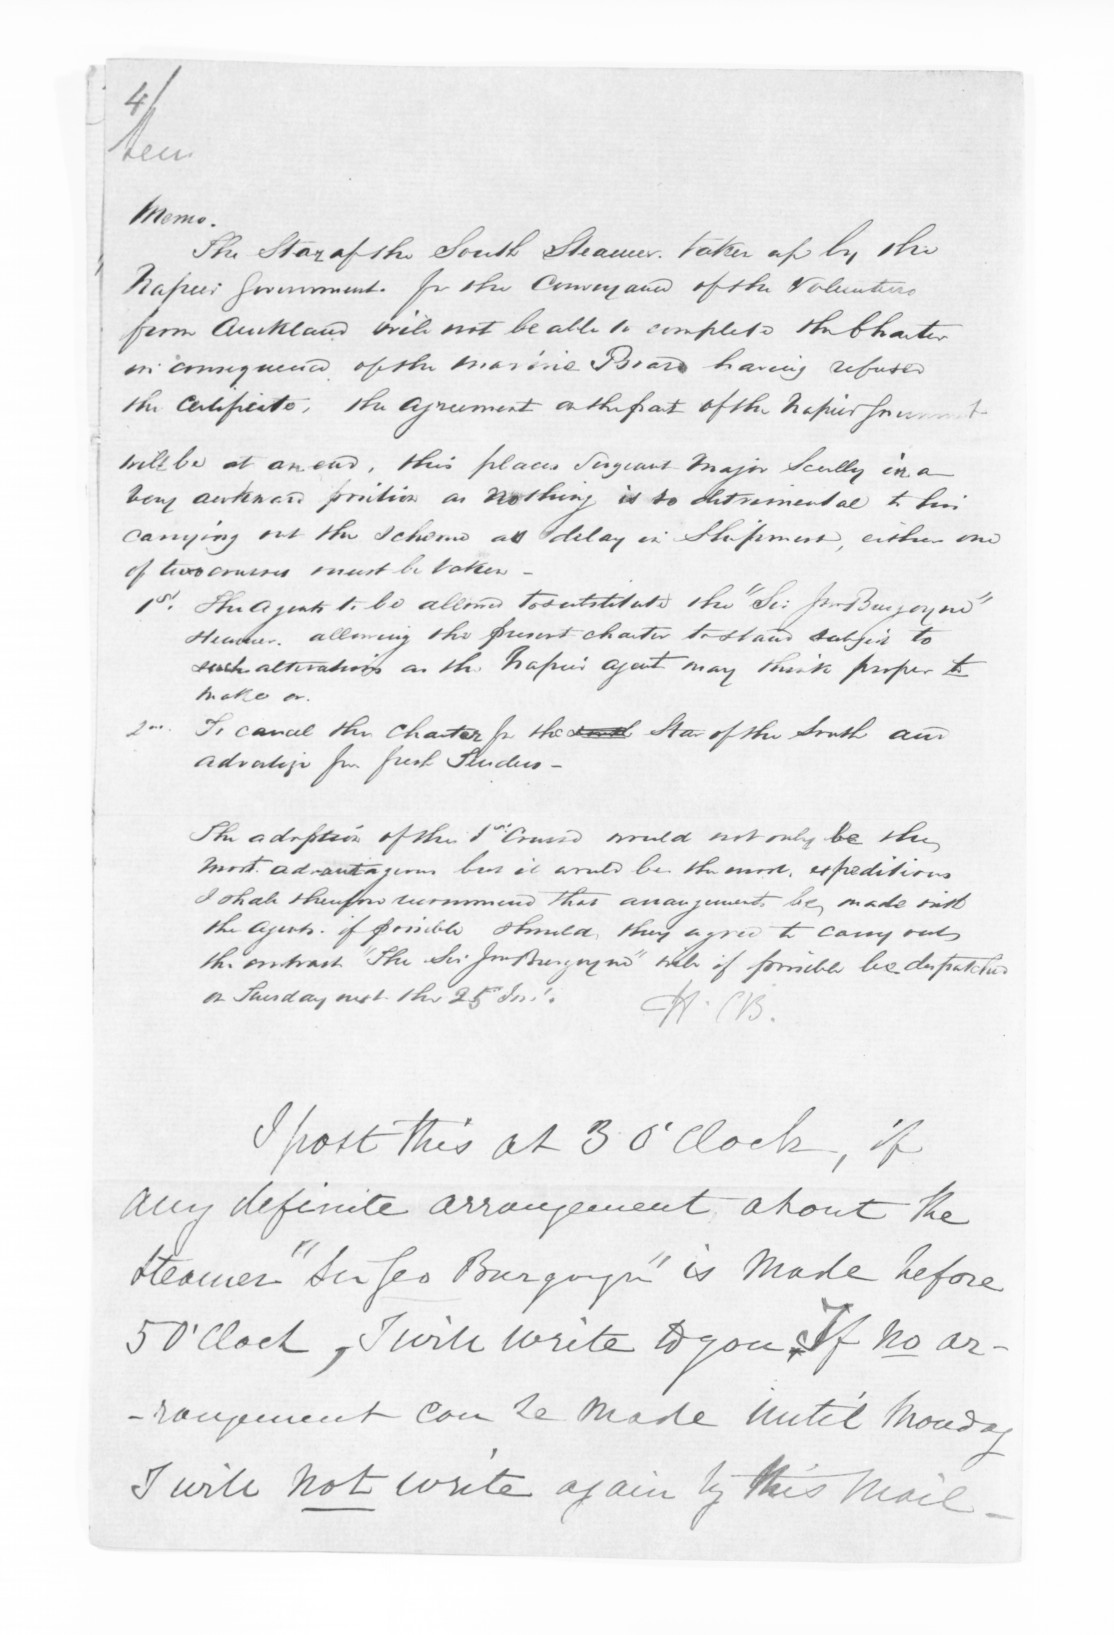 4/
Memo.
The Star of the South Steamer. taken up by the
Napier Government. for the Conveyance of the Volunteers
from Auckland will not be able to complete the Charter
in consequence of the Marine Board having refused
the Certificate, the Agreement on the part of the Napier Government
will be at an end, this places Sergeant Major Scully in a
very awkward position as nothing is so detrimental to his
carrying out the scheme as delay in Shipment, either one
of two courses must be taken -
1st. The Agents to be allowed to substitute the "Sir Jno Burgoyne"
steamer. allowing the present charter to stand subject to
such alterations as the Napier agent may think proper to
make or.
2nd. To cancel the Charter for the Star of the South and
advertise for fresh Tenders -
The adoption of the 1st Course would not only be the
most advantageous but it would be the most expeditious
I shall therefore recommend that arrangements be made with
the Agents. if possible should they agree to carry out
the contract "The Sir Jno Burgoyne" will if possible be despatched
on Tuesday next the 25 Inst.
H. C B.
I post this at 3 O'Clock, if
any definite arrangement about the
steamer "Sir Geo Burgoyn" is made before
5 O'Clock, I will write to you. If no ar-
-rangement can be made until Monday
I will not write again by this Mail -